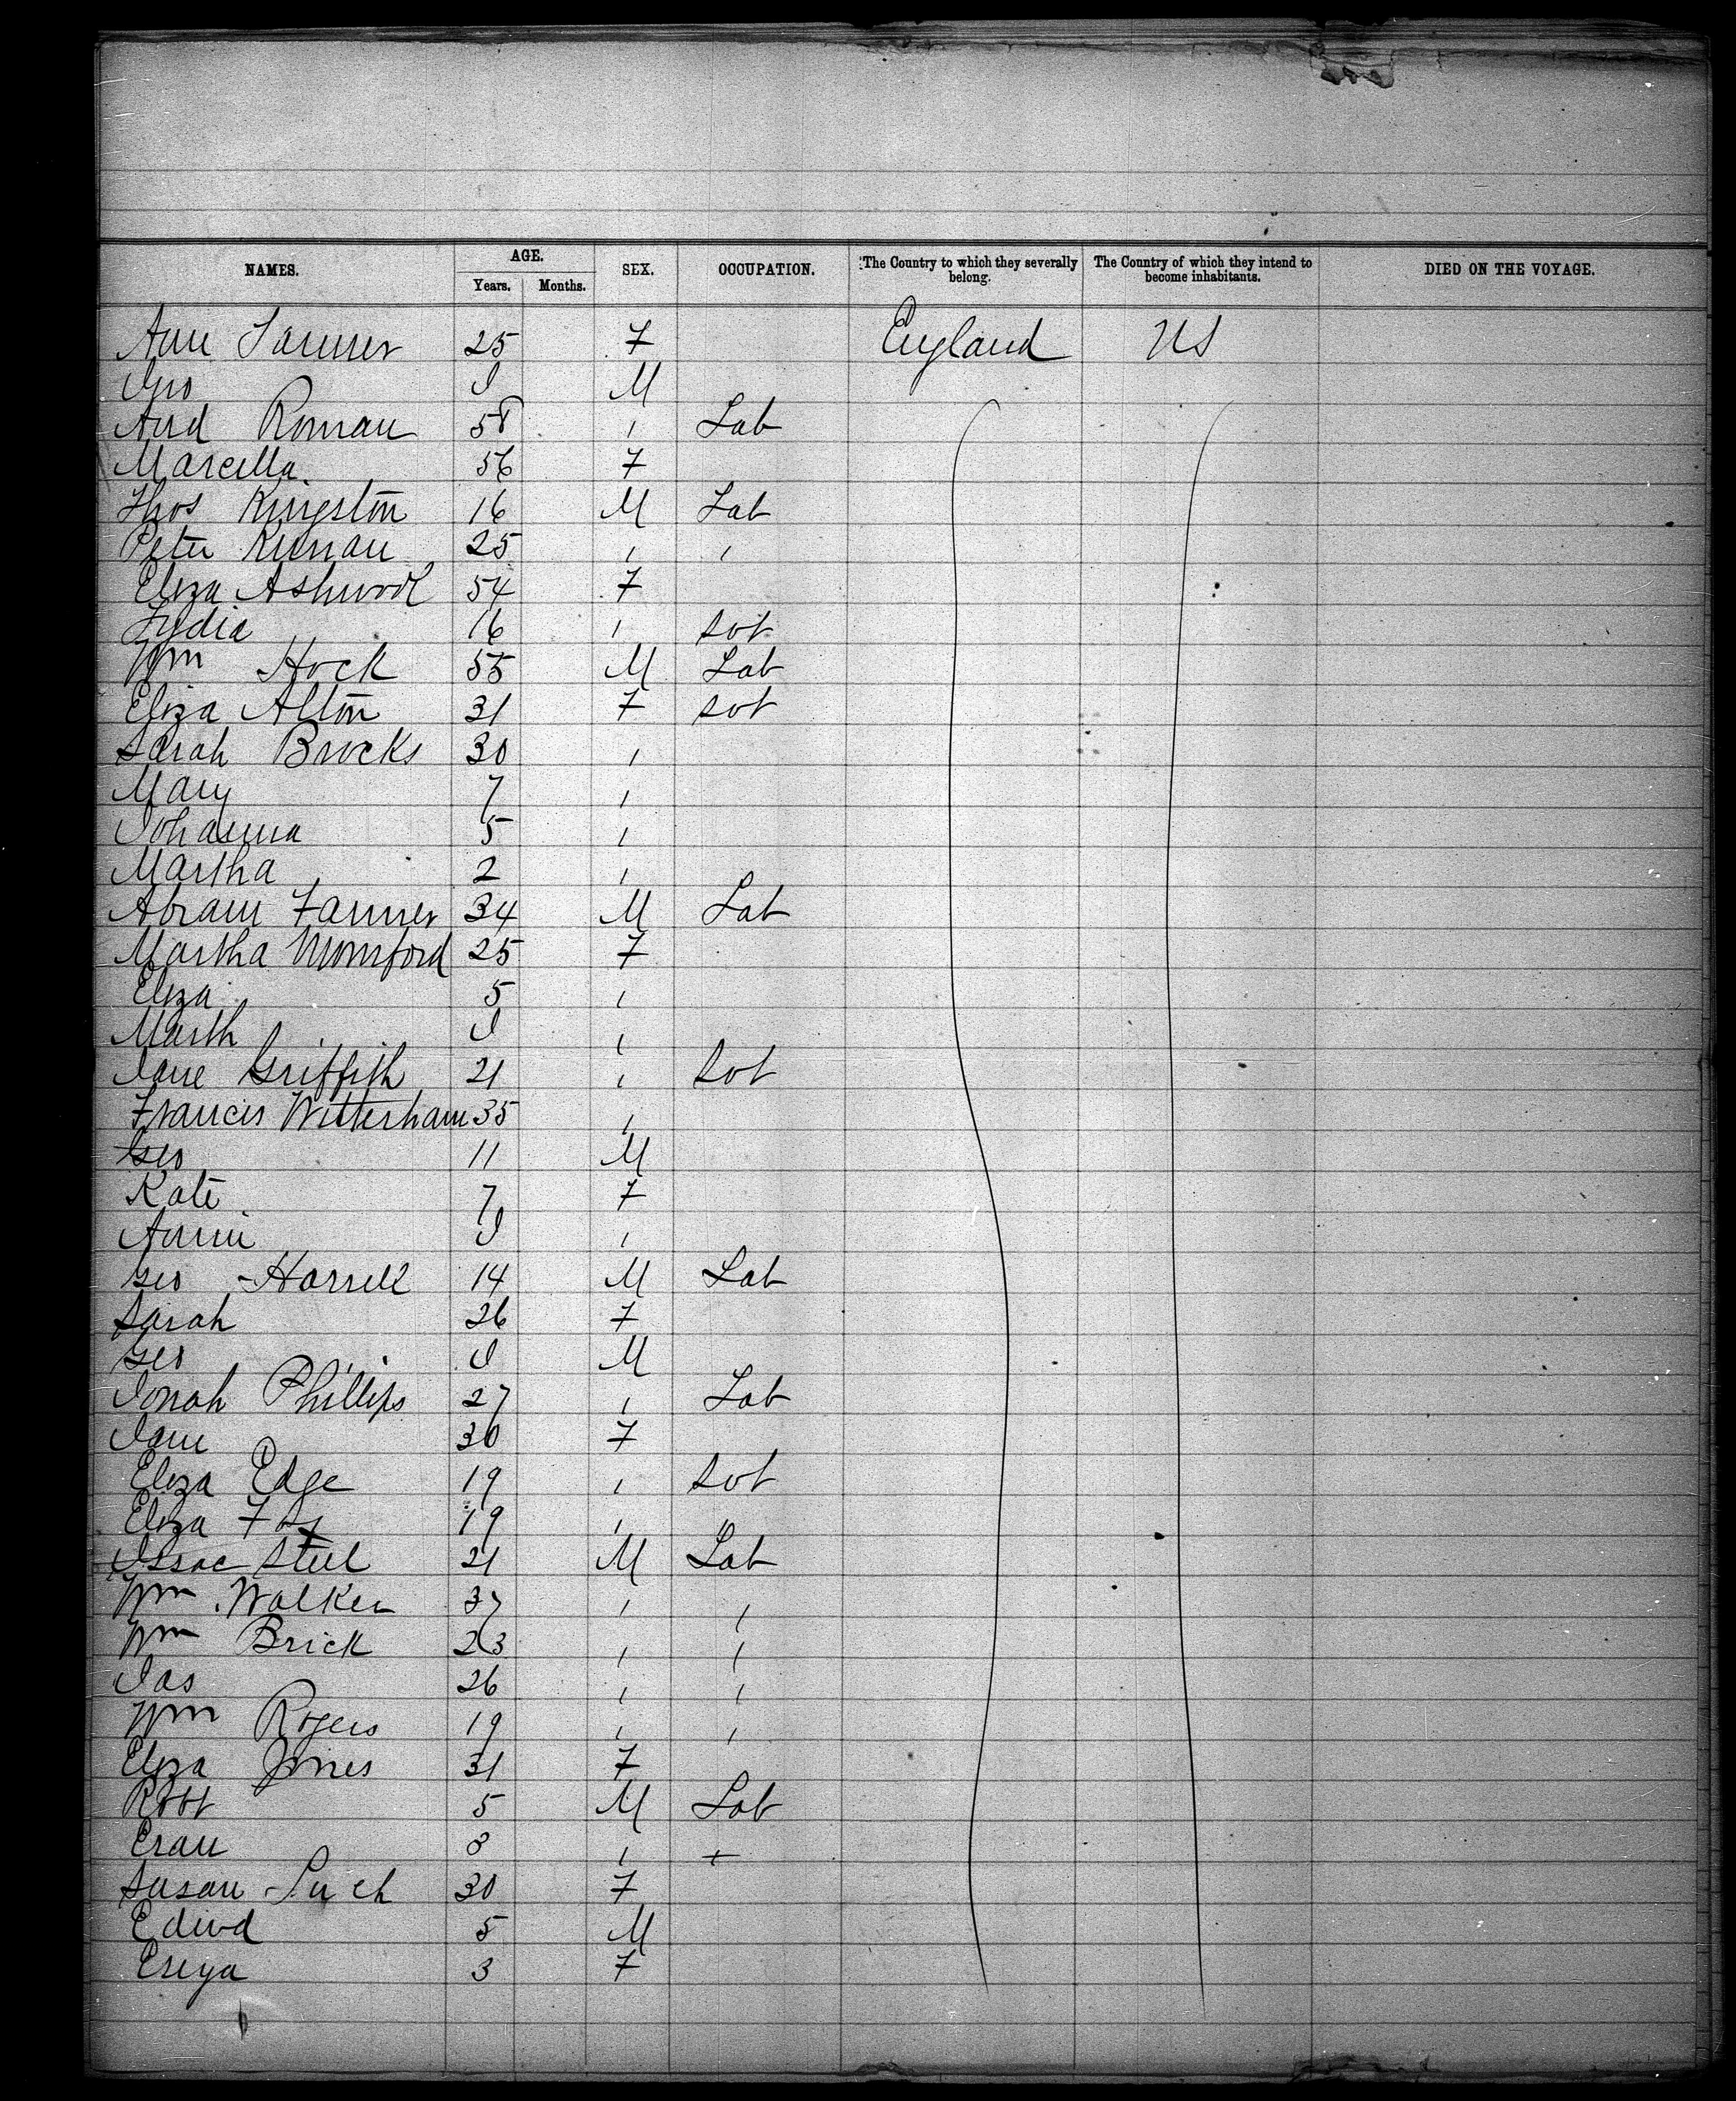 NAMES. AGE. SEX. OCCUPATION. The Country to which they severally belong. The Country of which they intend to become inhabitants. DIED ON THE VOYAGE.
Years. Months.
Ann Farmer 25 F England US
M
And Roman 58 " Lab
Marcella 56 F
Thos Kingston 16 M Lab
Peter 25 " "
Eliza Ashwood 54 F
Lydia 16 " svt
Wm Hock 55 M Lab
Eliza Alton 31 F svt
Sarah Brocks 30 "
Mary 7 "
Johanna 5 "
Martha 2 "
Abram Farmer 34 M Lab
Martha Momford 25 F
Eliza 5 "
Marth "
Jane Griffith 21 " Svt
Francis Witterham 35 "
Geo 11 M
Kate 7 F
Annie "
Geo Harrell 14 M Lab
Sarah 26 F
Geo M
Jonah Phillips 27 " Lab
Jane 30 F
Eliza Edge 19 " svt
Eliza 19 " "
Isaac Steel 21 M Lab
Wm Walker 37 " "
Wm Brick 23 " "
Jas 26 " "
Wm Rogers 19 " "
Eliza Jones 31 F
Robt 5 M Lab
8 " +
Susan 30 F
Edwd 5 M
3 F